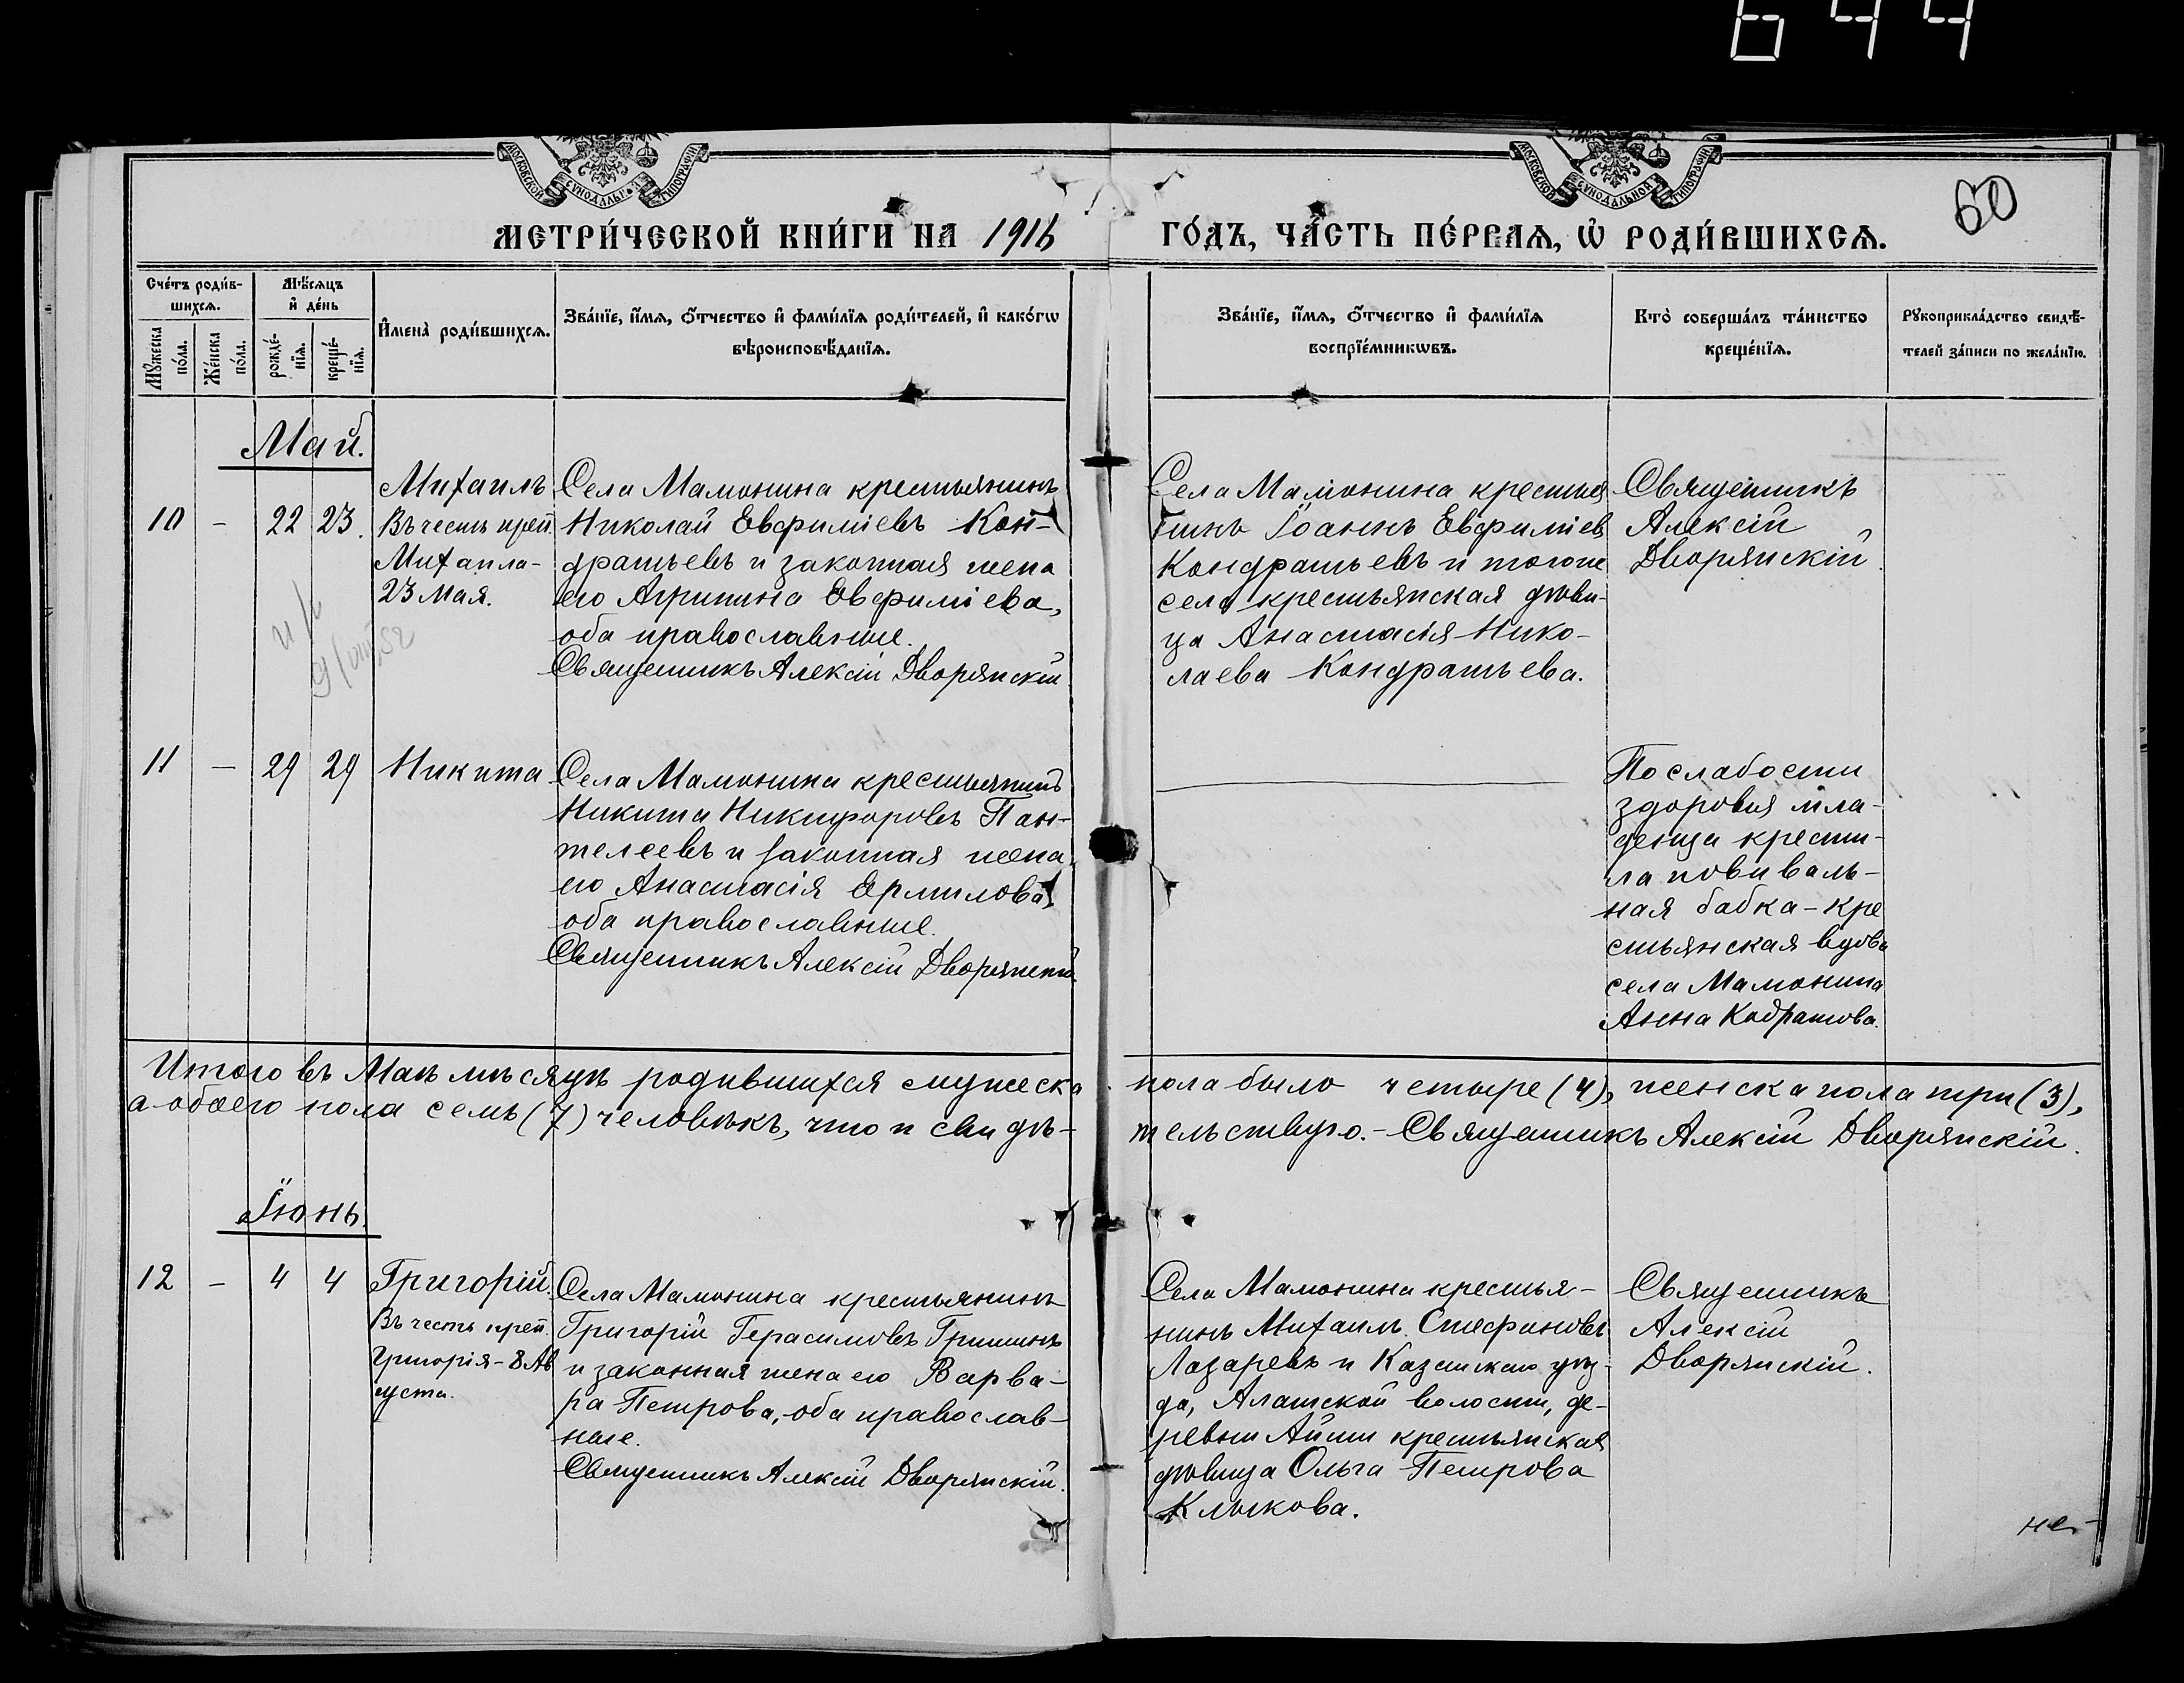 644
МОСКОВСКОЙ СѴНОДАЛЬНОЙ ТИПОГРАФІИ
МОСКОВСКОЙ СѴНОДАЛЬНОЙ ТИПОГРАФІИ
60
МЕТРИ́ЧЕСКОЙ КНИ́ГИ НА 1916 ГО́ДЪ, ЧА́СТЬ ПЕ́РВАѦ, Ѡ РОДИ́ВШИХСѦ.
Сче́тъ роди́в-
шихсѧ.
Мꙋжеска по́ла.
Же́нска по́ла.
Мѣ́сѧцъ
и҆ де́нь
рожде́-
нїѧ.
креще́-
нїѧ.
И҆мена̀ роди́вшихсѧ.
Зва́нїе, и҆́мѧ, ѻ҆́тчество и҆ фами́лїѧ роди́телей, и҆ како́гѡ
вѣроисповѣ́данїѧ.
Зва́нїе, и҆́мѧ, ѻ҆́тчество и҆ фами́лїѧ
воспрїе́мникѡвъ.
Кто̀ соверша́лъ та́инство
креще́нїѧ.
Рꙋкоприкла́дство свидѣ́-
телей за́писи по жела́нїю.
Май.
10 - 22 23.
Михаилъ
Въ честь преп.
Михаила-
23 Мая.
Села Мамонина крестьянинъ
Николай Евфиміевъ Кон-
дратьевъ и законная жена
его Агрипина Евфиміева,
оба православные.
Священникъ Алексій Дворянскій
Села Мамонина крестья
нинъ Іоаннъ Евфиміев
Кондратьевъ и тогоже
села крестьянская дѣви-
ца Анастасія Нико-
лаева Кондратьева.
Священникъ
Алексій
Дворянскій.
11 - 29 29
Никита
Села Мамонина крестьянинъ
Никита Никифоровъ Пан-
телеевъ и законная жена
его Анастасія Ермилова,
оба православные.
Священникъ Алексій Дворянскій.
По слабости
здоровья мла-
денца крести-
ла повиваль-
ная бабка-кре
стьянская вдова
села Мамонина
Анна Кодратова.
Итого въ Маѣ мѣсяцѣ родившихся мужеска пола было четыре (4), женска пола три (3),
а обоего пола семь (7) человѣкъ, что и свидѣ-тельствую.- Священникъ Алексій Дворянскій.
Іюнь.
12 - 4 4
Григорій.
Въ честь преп.
Григорія-8 Ав
густа.
Села Мамонина крестьянинъ
Григорій Герасимовъ Гришинъ
и законная жена его Варва-
ра Петрова, оба православ-
ные.
Священникъ Алексій Дворянскій.
Села Мамонина крестья-
нинъ Михаилъ Стефановъ
Лазаревъ и Казанскаго уѣз-
да, Алатской волости, де-
ревни Айши крестьянская
дѣвица Ольга Петрова
Клыкова.
Священникъ
Алексій
Дворянскій.